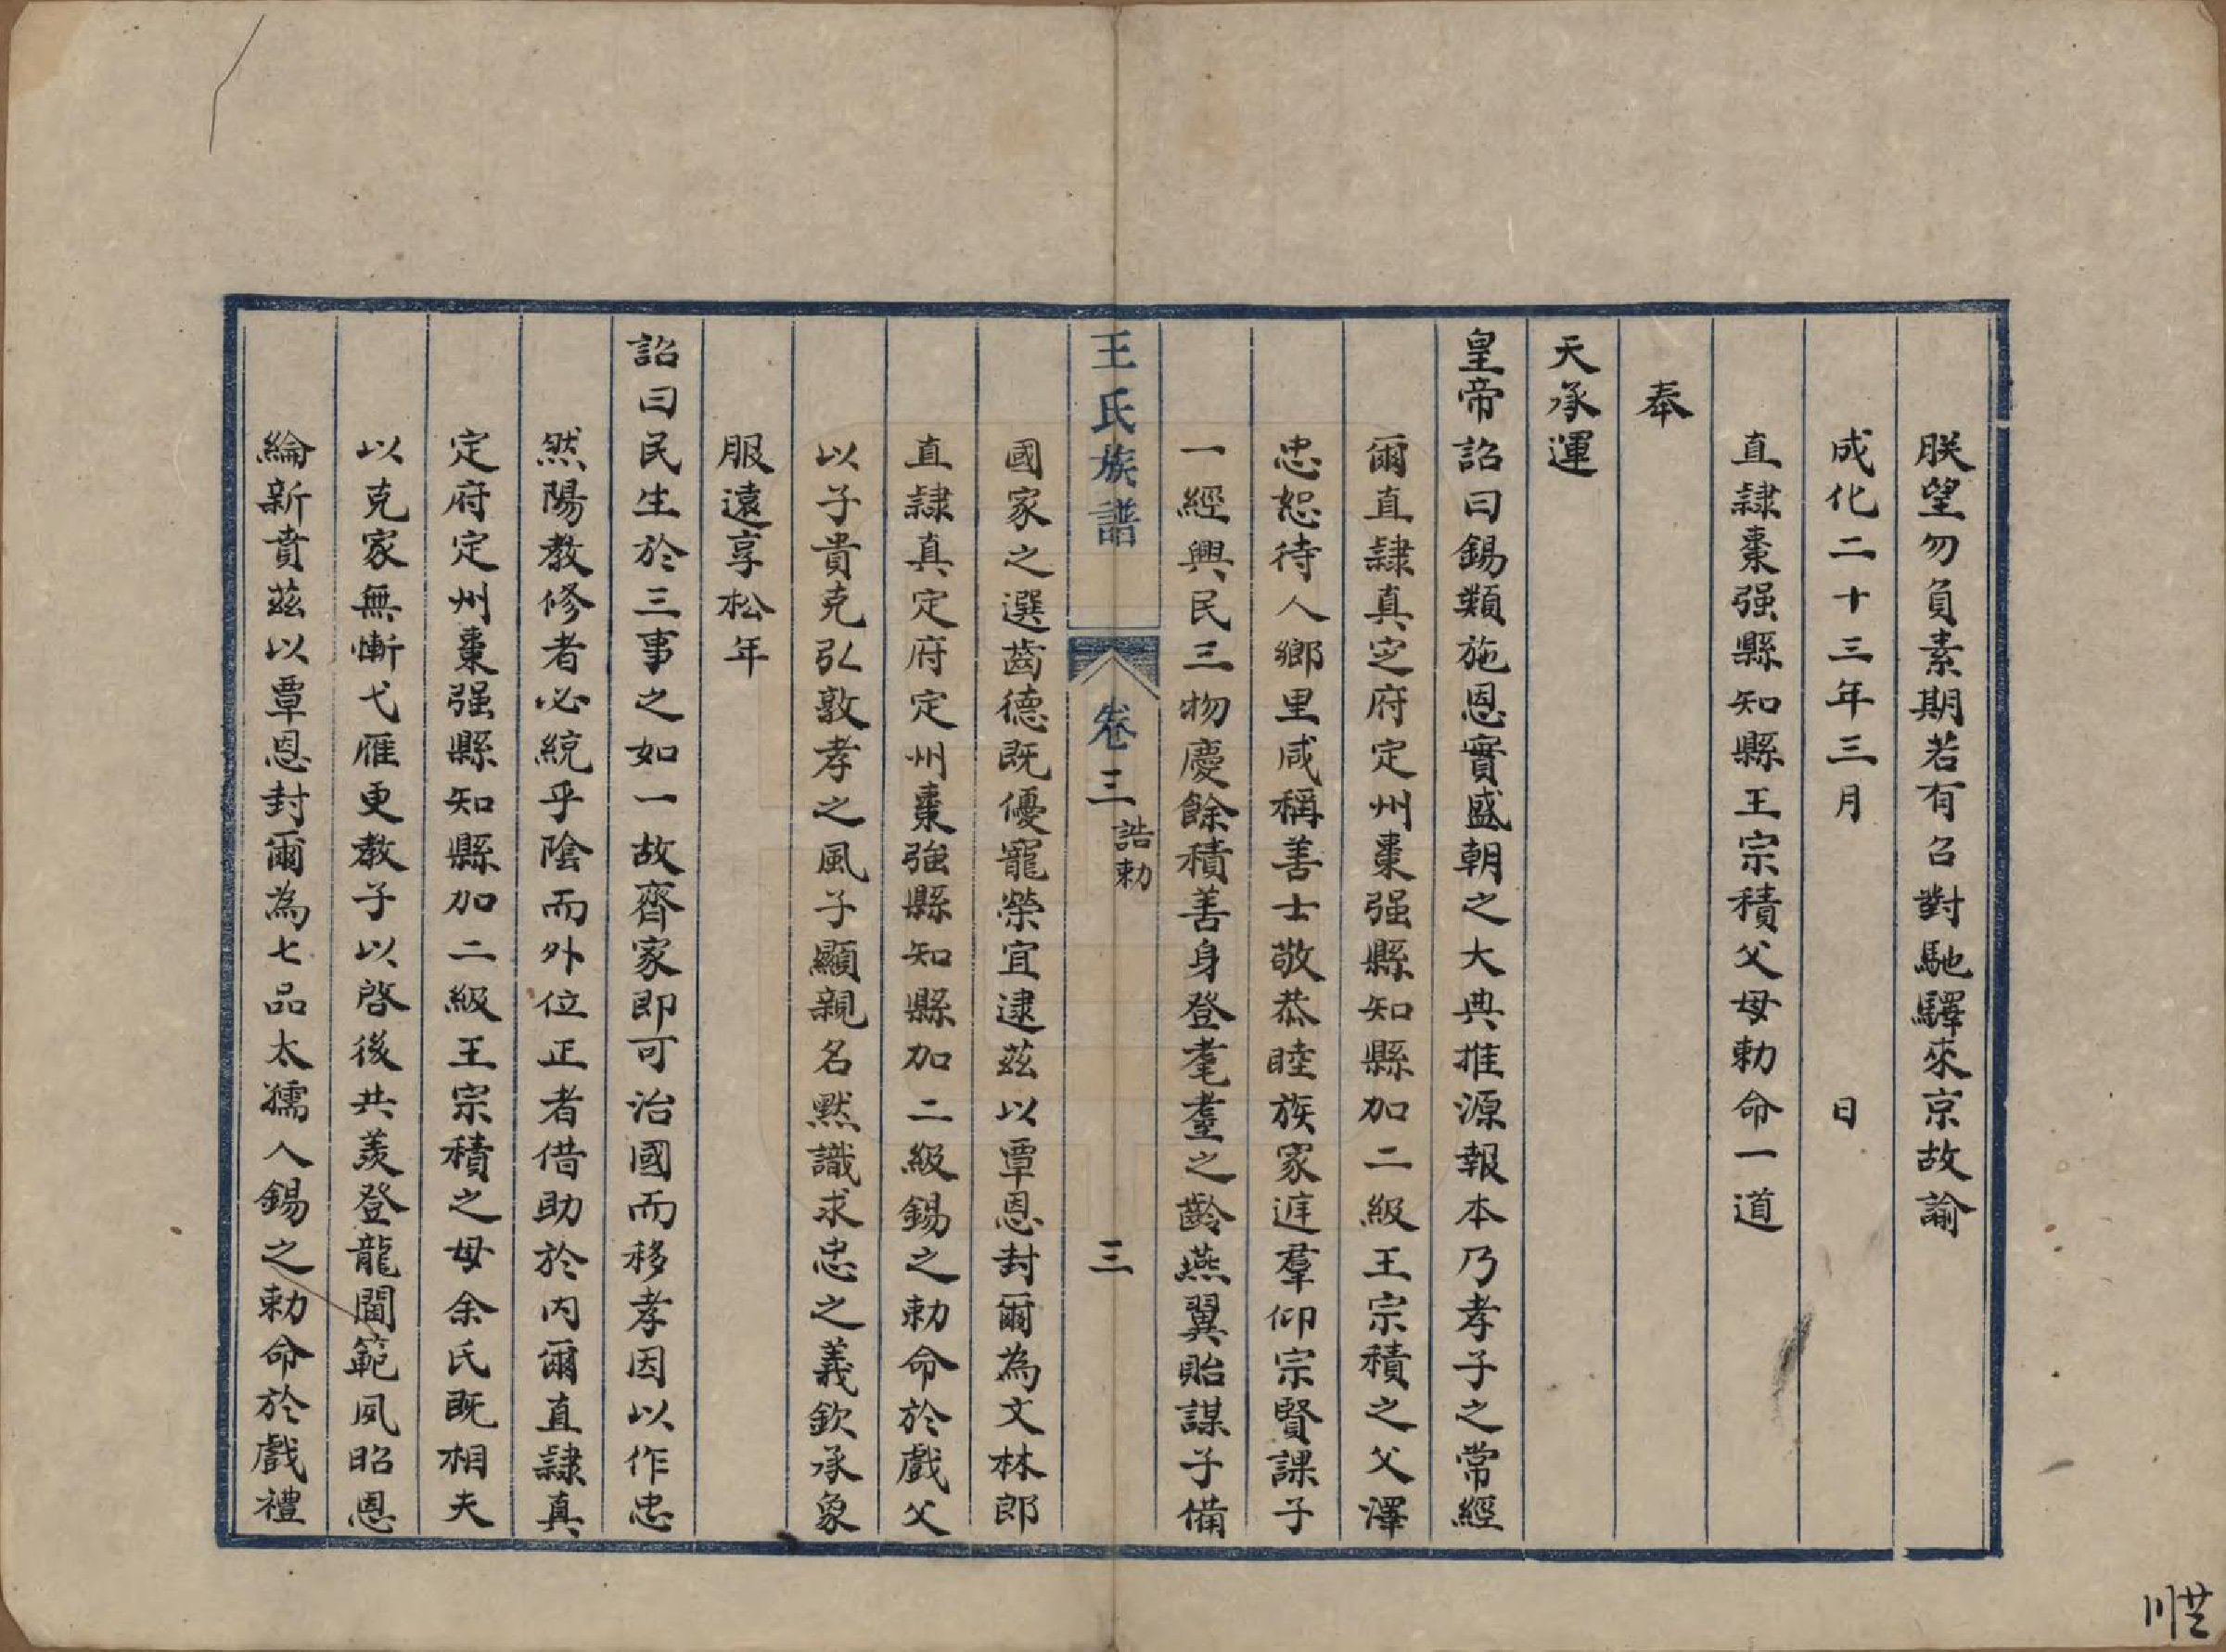 朕望勿負素期若有召對馳驛來京故諭
成化二十三年三月　日
直隸棗强縣知縣王宗積父母勅命一道
奉
天承運
皇帝詔曰錫類施恩實盛朝之大典推源報本乃孝子之常經
爾直隸真定府定州棗强縣知縣加二級王宗積之父澤
忠恕待人鄉里咸稱善士敬恭睦族家遅羣仰宗賢課子
一經興民三物慶餘積善身登耄耋之齡燕翼貽謀子備
王氏族譜 卷三 誥勅 三
國家之選齒德既優寵榮宜逮茲以覃恩封爾為文林郎
直隸真定府定州棗強縣知縣加二級錫之勅命於戲父
以子貴克弘敦孝之風子顯親名默識求忠之義欽承象
服遠享松年
詔曰民生於三事之如一故齊家即可治國而移孝因以作忠
然陽教修者必統乎陰而外位正者借助於内爾直隸真
定府定州棗强縣知縣加二級王宗積之母余氏既相夫
以克家無慚弋雁更教子以啓後共羡登龍閫範夙昭恩
綸新賁茲以覃恩封爾為七品太孺人錫之勅命於戲禮